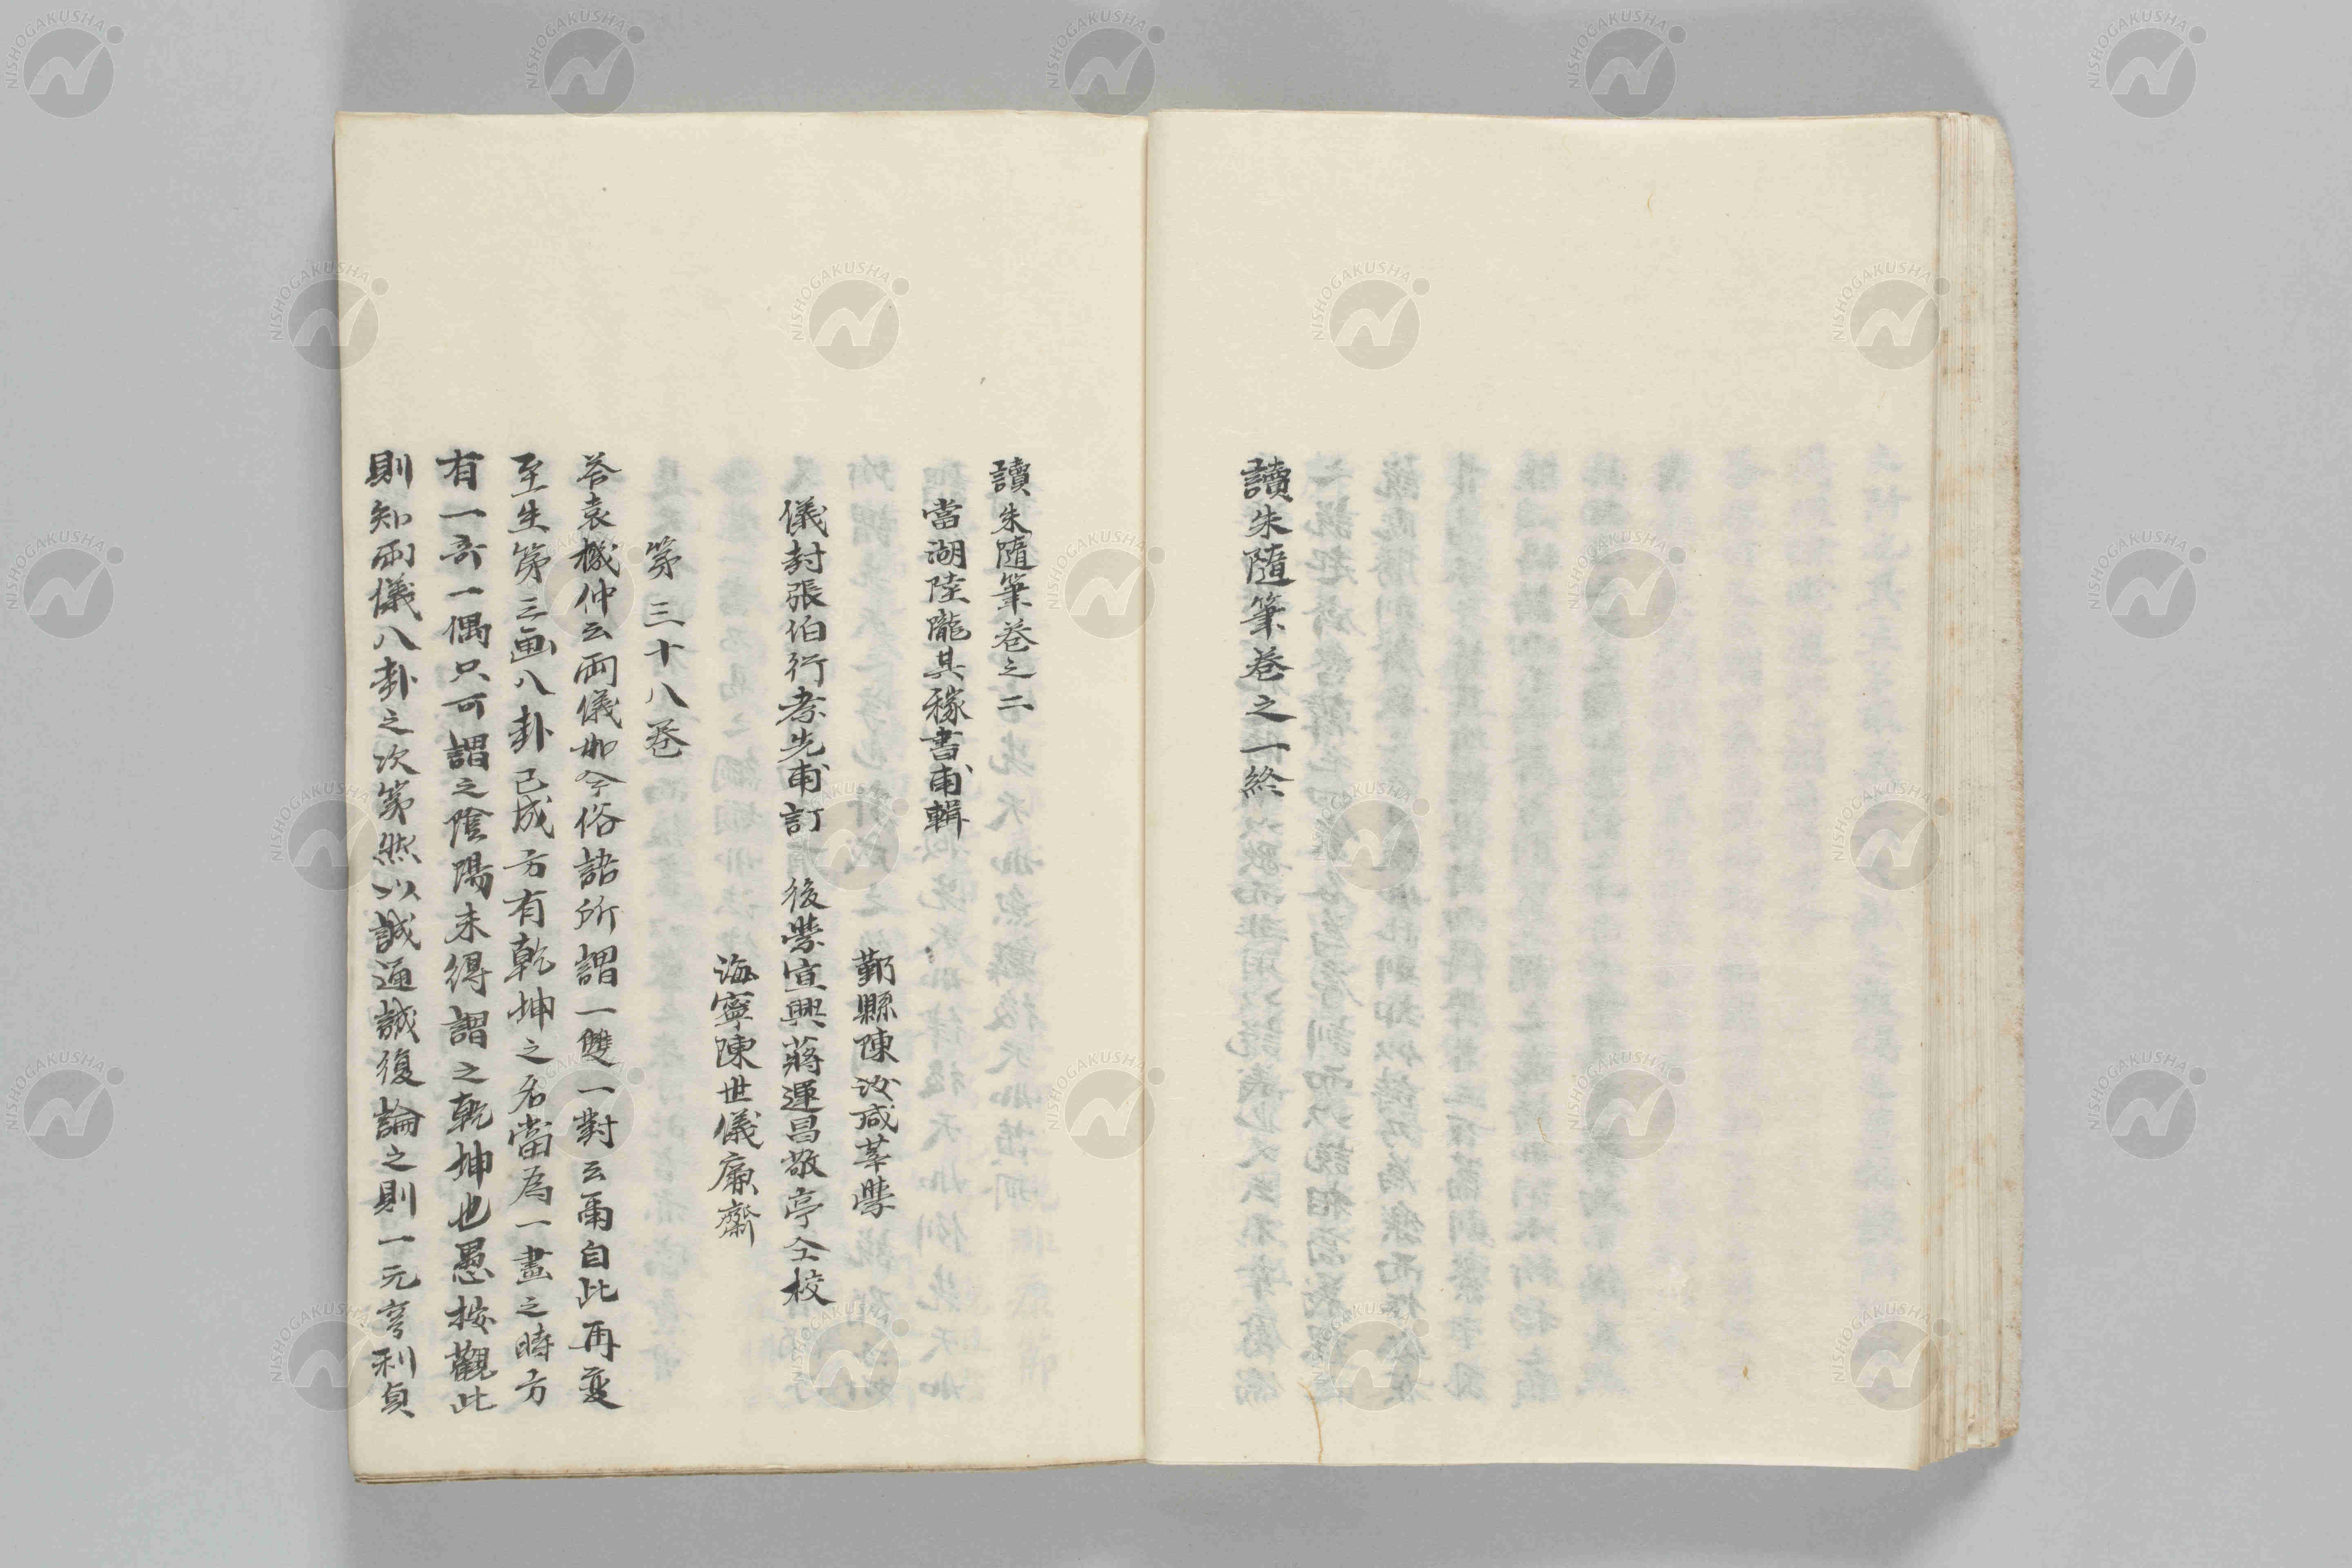 讀朱隨筆卷之一終
讀朱隨筆卷之二
當湖陸隴其稼書甫輯
鄞縣陳汝咸莘學
儀封張伯行孝先甫訂 後學宜興蔣運昌敬亭仝校
海寧陳世儀廉齋
第三十八卷
荅袁機仲云兩儀如今俗語所謂一雙一對云爾自此再變
至生第三画八卦已成方有乾坤之名當為一畫之時方
有一奇一偶只可謂之陰陽未得謂之乾坤也愚按觀此
則知兩儀八卦之次第然以誠通誠復論之則一元亨利貞
NISHOGAKUSHA